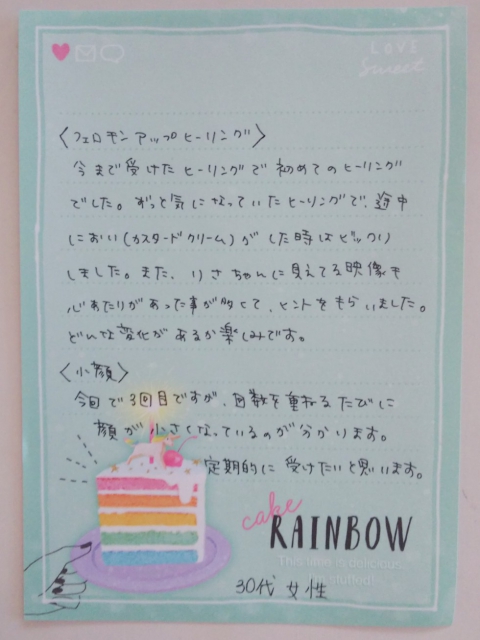 LOVE
Sweet
〈フェロモンアップヒーリング〉
今まで受けたヒーリングで初めてのヒーリング
でした。ずっと気になっていたヒーリングで、途中
におい(カスタードクリーム)がした時はビックリ
しました。また、りさちゃんに見えてる映像も
心あたりがあった事が多くて、ヒントをもらいました。
どんな変化があるか楽しみです。
〈小顔〉
今回で3回目ですが、回数を重ねるたびに
顔が小さくなっているのが分かります。
定期的に受けたいと思います。
cake
RAINBOW
This time is delicious,
stuffed!
30代 女性